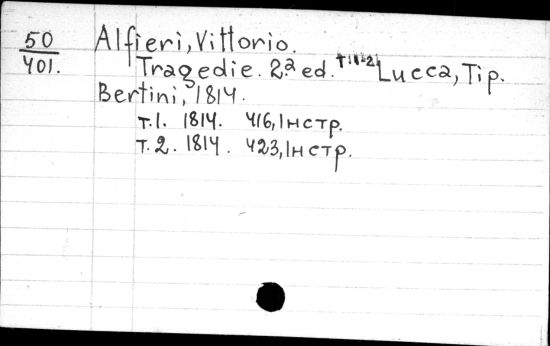 50
401.
Alfieri, Vittorio.
Tragedie. 2.a ed. т.1-2 Lucca, Tip.
Bertini, 1814.
т.1. 1814. 416, 1нстр.
т.2. 1814. 423, 1нстр.